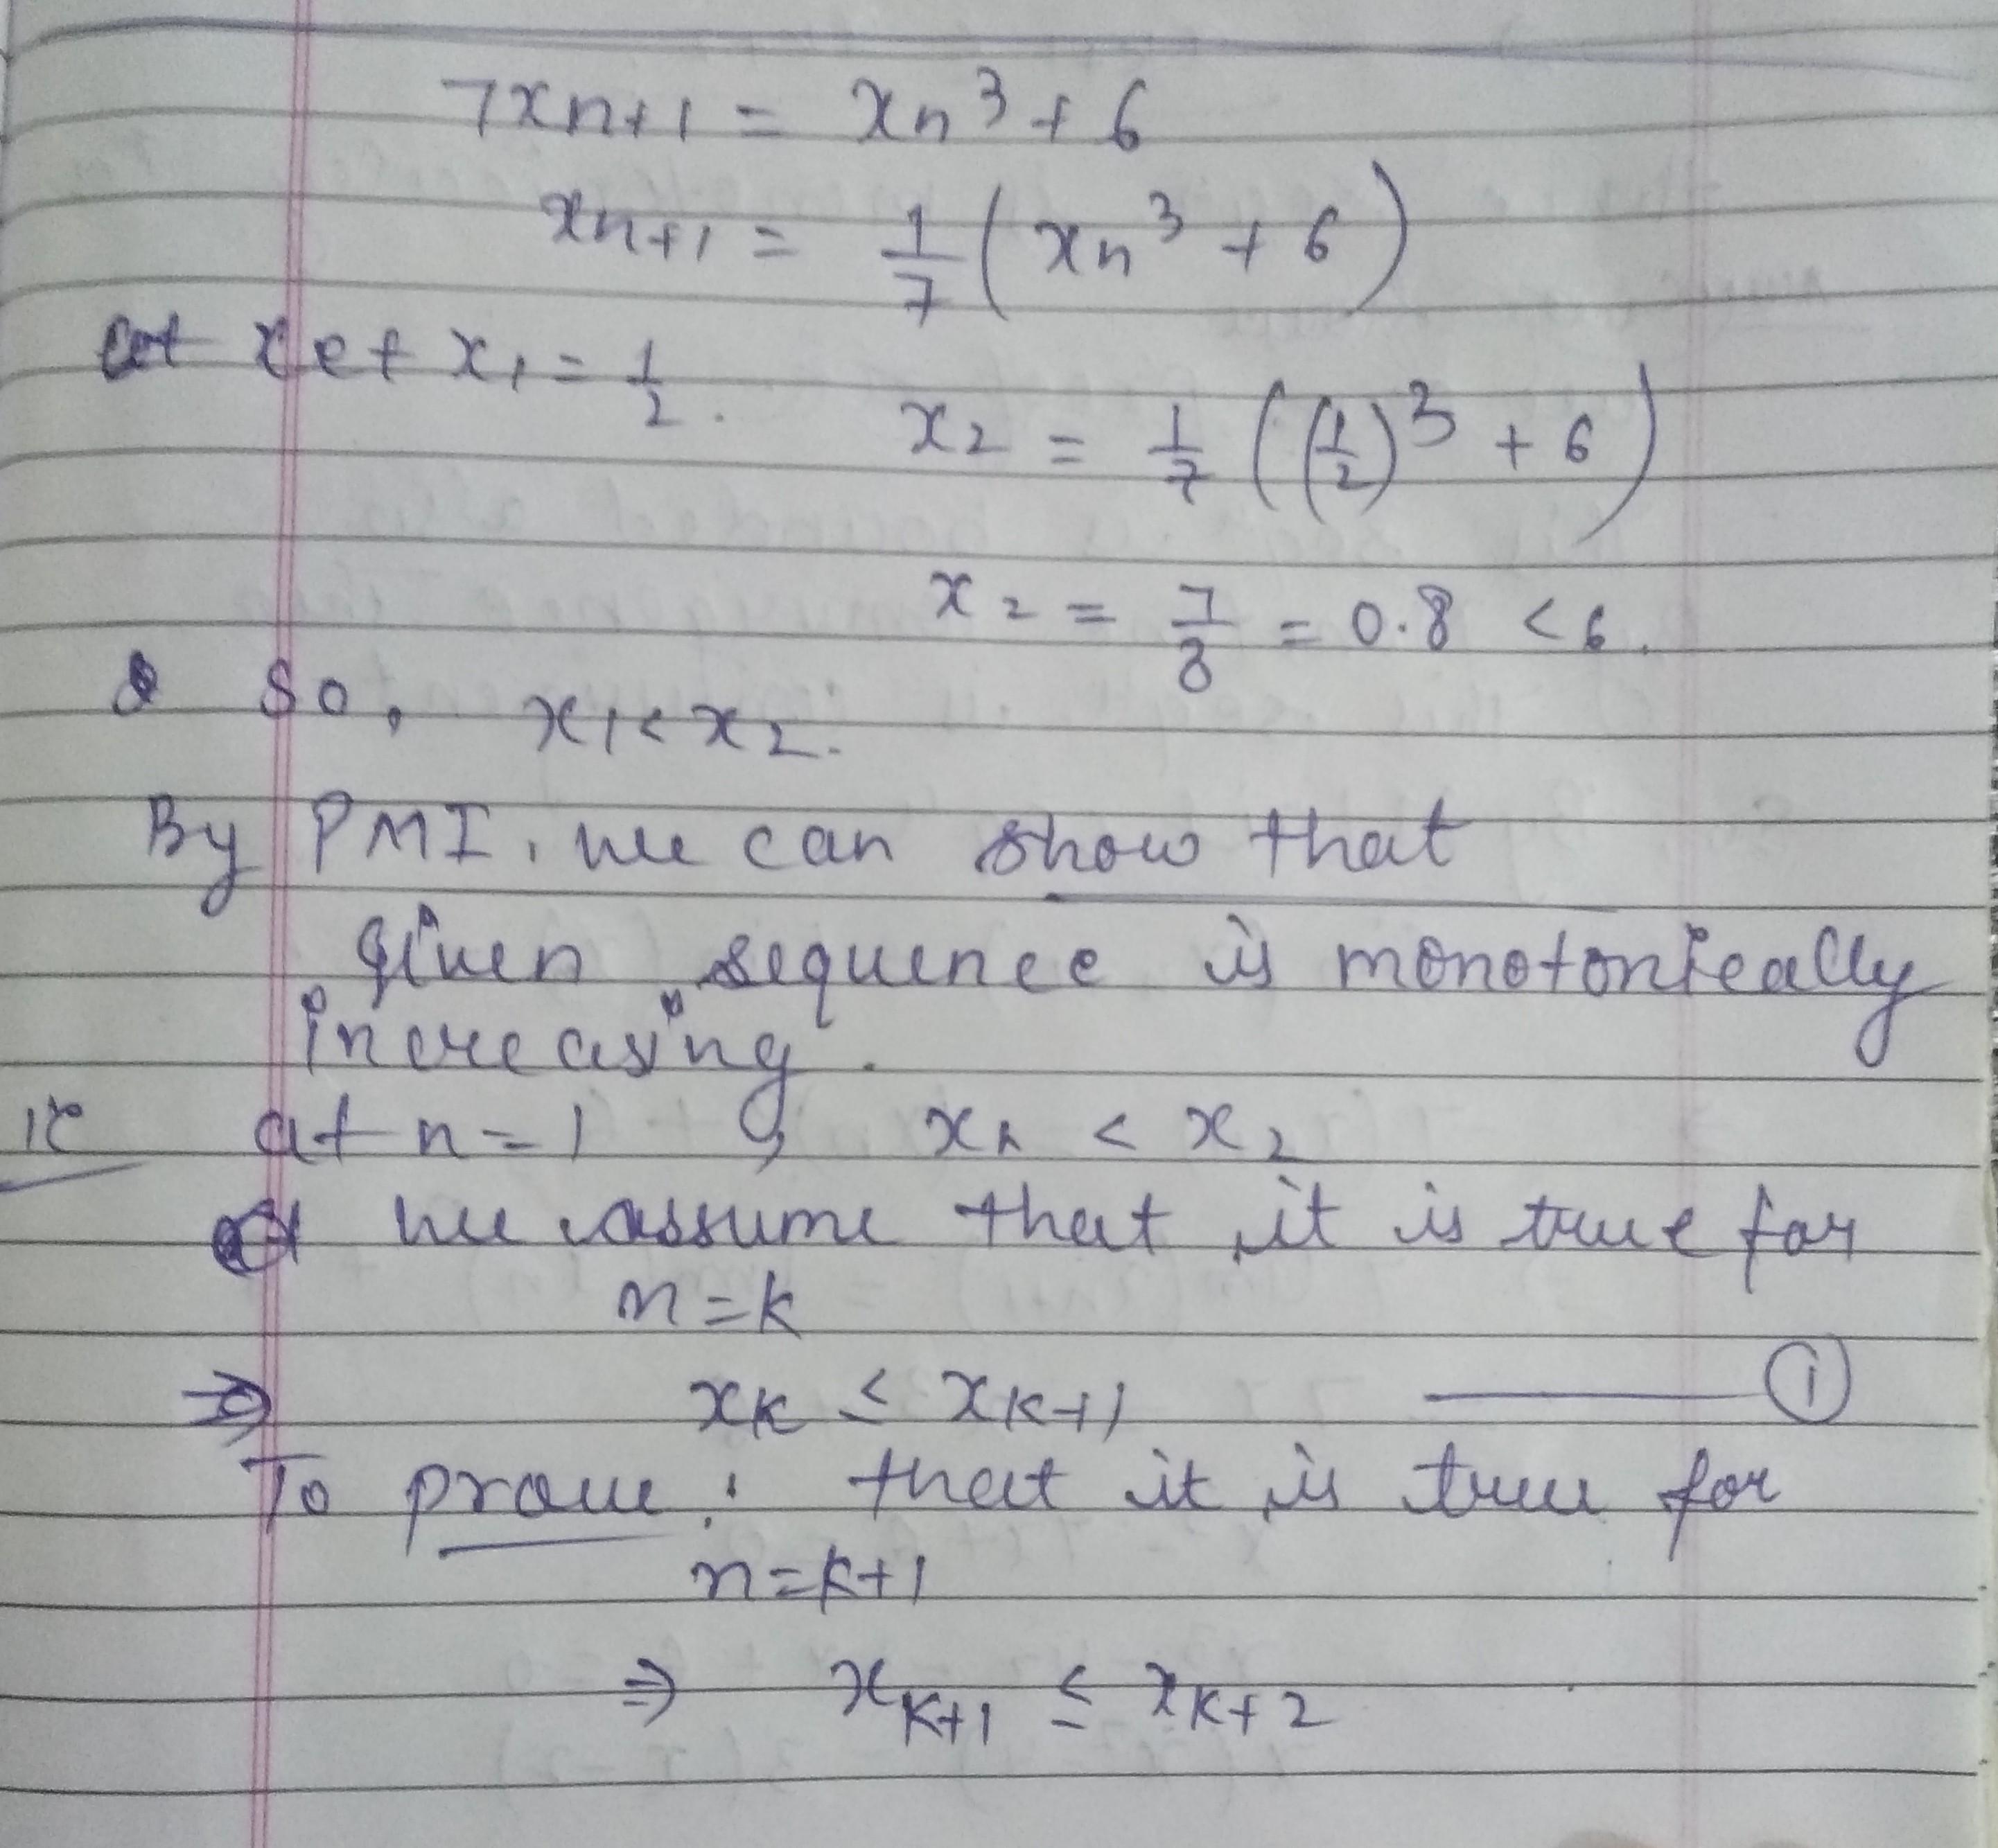 7xn+1 = xn³ + 6
xn+1 = 1/7 (xn³ + 6)
let x1 = 1/2.
x2 = 1/7 ((1/2)³ + 6)
x2 = 7/8 = 0.8 < 6.
So, x1 < x2.
By PMI, we can show that
given sequence is monotonically
increasing.
ie at n = 1, x1 < x2
we assume that it is true for
n = k
⇒ xk ≤ xk+1 —— ①
To prove: that it is true for
n = k+1
⇒ xk+1 ≤ xk+2